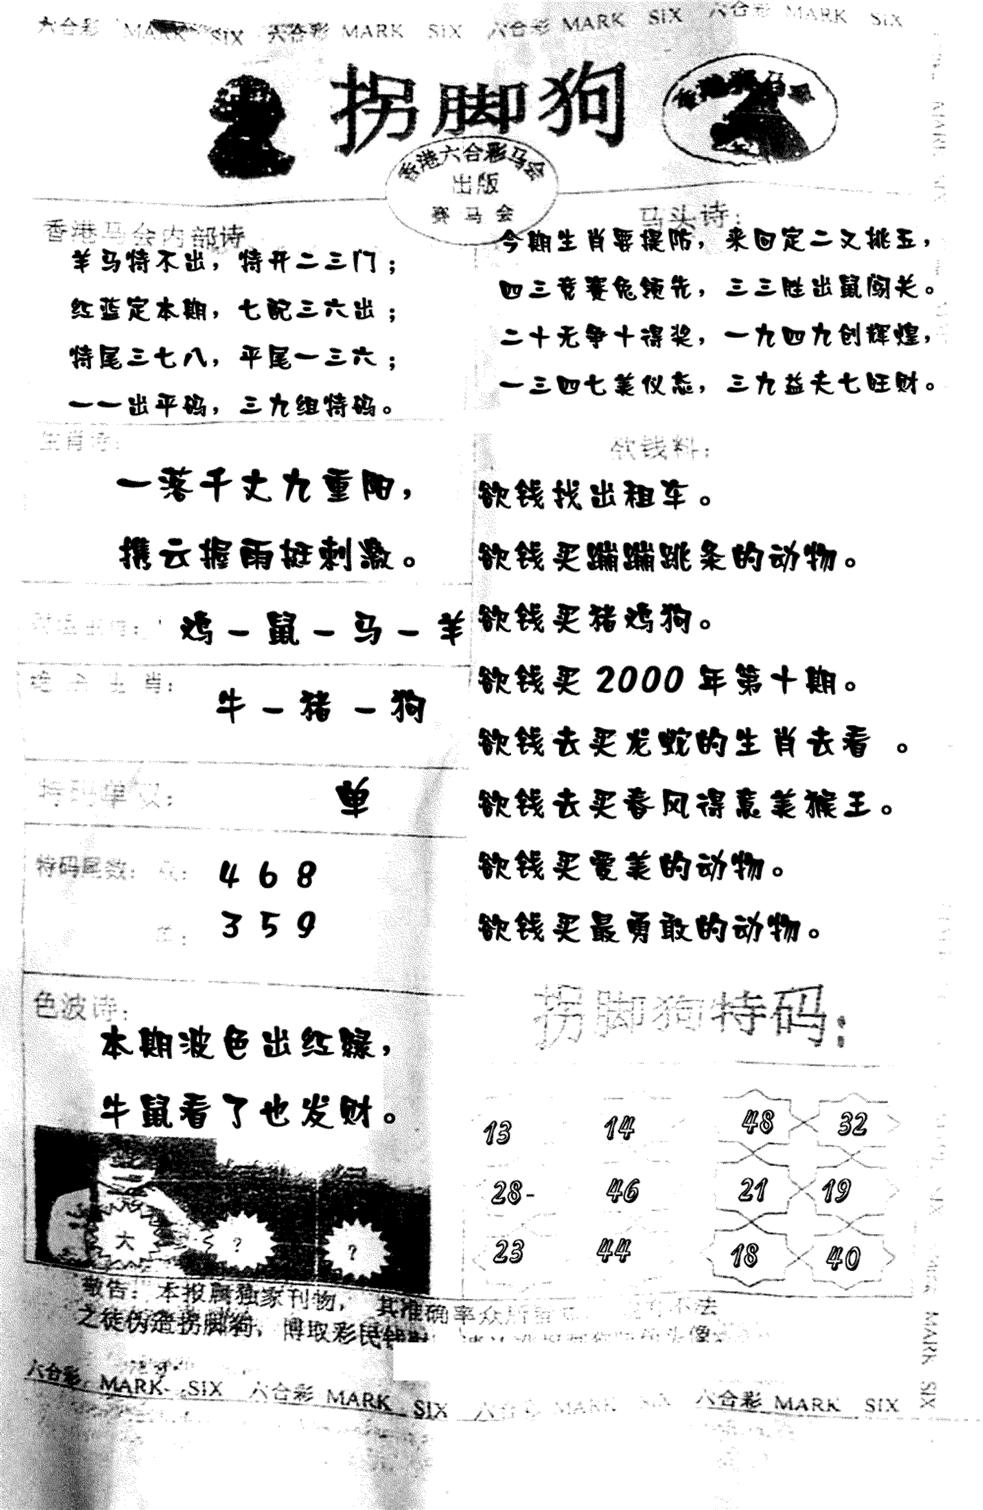 六合彩 MARK SIX 六合彩 MARK SIX 六合彩 MARK SIX 六合彩 MARK SIX
拐脚狗
香港赛马会
香港六合彩马会
出版
赛马会
香港马会内部诗
羊马特不出，特开二三门；
红蓝定本期，七配三六出；
特尾三七八，平尾一三六；
一一出平码，三九组特码。
马头诗：
今期生肖要提防，来回定二又挑五，
四三竞赛兔领先，三三胜出鼠闯关。
二十无争十得奖，一九四九创辉煌，
一三四七美仪态，三九益夫七旺财。
生肖诗：
一落千丈九重阳，
携云握雨挺刺激。
鸡－鼠－马－羊
绝杀生肖：
牛－猪－狗
特码单双：
单
特码尾数：双：
4 6 8
单：
3 5 9
色波诗：
本期波色出红绿，
牛鼠看了也发财。
大 ? ?
欲钱料：
欲钱找出租车。
欲钱买蹦蹦跳条的动物。
欲钱买猪鸡狗。
欲钱买 2000 年第十期。
欲钱去买龙蛇的生肖去看 。
欲钱去买春风得意美猴王。
欲钱买爱美的动物。
欲钱买最勇敢的动物。
拐脚狗特码：
13 14 48 32
28- 46 21 19
23 44 18 40
敬告：本报属独家刊物，其准确率众所
之徒伪造拐脚狗，博取彩民钱财
六合彩 MARK SIX 六合彩 MARK SIX 六合彩 MARK SIX 六合彩 MARK SIX
MARK SIX